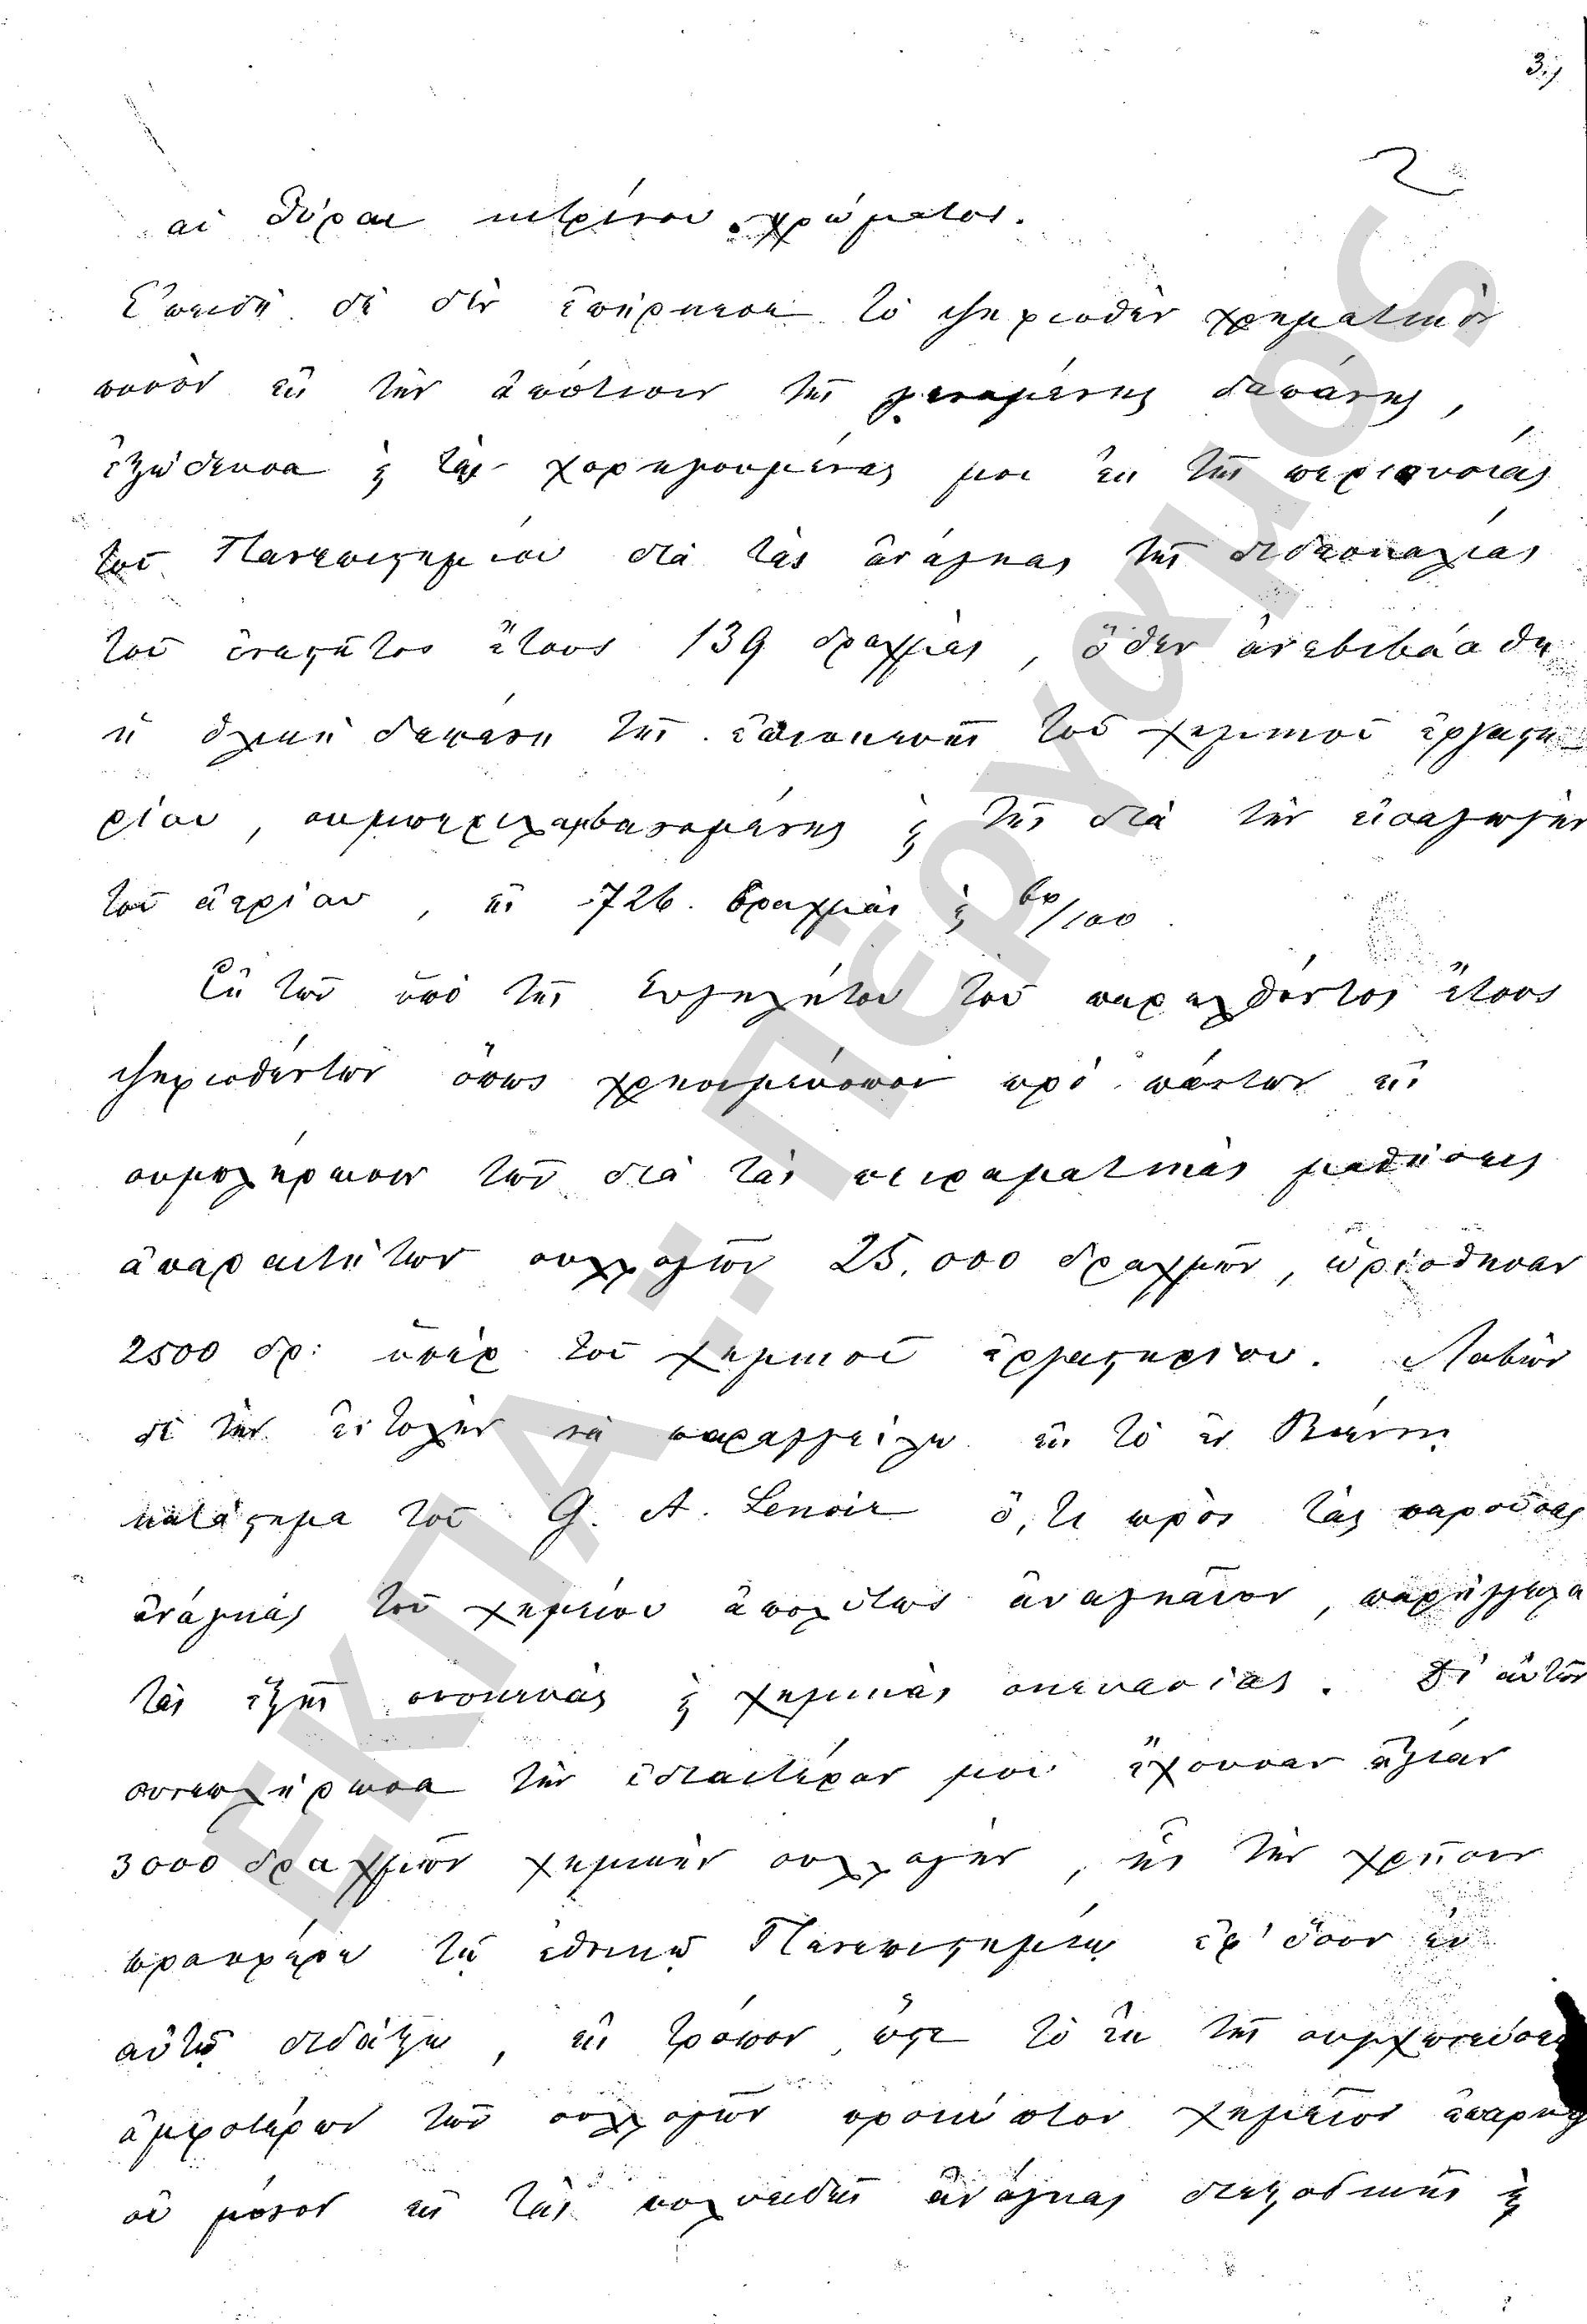 3.
2
αἱ θύραι κιτρίνου χρώματος.
Ἐπειδὴ δὲ δὲν ἐπήρκεσε τὸ ψηφισθὲν χρηματικὸν
ποσὸν εἰς τὴν ἀπότισιν τῆς γενομένης δαπάνης,
ἐξώδευσα ϗ τὰς χορηγουμένας μοι ἐκ τῆς περιουσίας
τοῦ Πανεπιστημίου διὰ τὰς ἀνάγκας τῆς διδασκαλίας
τοῦ ἐνεστῶτος ἔτους 139 δραχμὰς, ὅθεν ἀνεβιβάσθη
ἡ ὁλικὴ δαπάνη τῆς ἐπισκευῆς τοῦ χημικοῦ ἐργαστη
ρίου, συμπεριλαμβανομένης ϗ τῆς διὰ τὴν εἰσαγωγὴν
τοῦ ἀερίου, εἰς 726. δραχμὰς ϗ 60/100
Ἐκ τῶν ὑπὸ τῆς Συγκλήτου τοῦ παρελθόντος ἔτους
ψηφισθέντων ὅπως χρησιμεύσωσι πρὸ πάντων εἰς
συμπλήρωσιν τῶν διὰ τὰς πειραματικὰς μαθήσεις
ἀπαραιτήτων συλλογῶν 25,000 δραχμῶν, ὡρίσθησαν
2500 δρ: ὑπὲρ τοῦ χημικοῦ ἐργαστηρίου. Λαβὼν
δὲ τὴν ἐντολὴν νὰ παραγγείλω εἰς τὸ ἐν Βιέννῃ
κατάστημα τοῦ G. A. Lenoir ὅ,τι πρὸς τὰς παρούσας
ἀνάγκας τοῦ χημείου ἀπολύτως ἀναγκαῖον, παρήγγειλα
τὰς ἑξῆς συσκευὰς ϗ χημικὰς σκευασίας. Δι' αὐτῶν
συνεπλήρωσα τὴν ἰδιαιτέραν μου ἔχουσαν ἀξίαν
3000 δραχμῶν χημικὴν συλλογὴν, ἧς τὴν χρῆσιν
προσφέρω τῷ ἐθνικῷ Πανεπιστημίῳ ἐφ' ὅσον ἐν
αὐτῷ διδάξω, εἰς τρόπον ὥστε τὸ ἐκ τῆς συγχωνεύσεως
ἀμφοτέρων τῶν συλλογῶν προκύπτον χημεῖον ἐπαρκεῖ
οὐ μόνον εἰς τὰς πολυειδεῖς ἀνάγκας διεξοδικῆς ϗ
ΕΚΠΑ - Πέργαμος